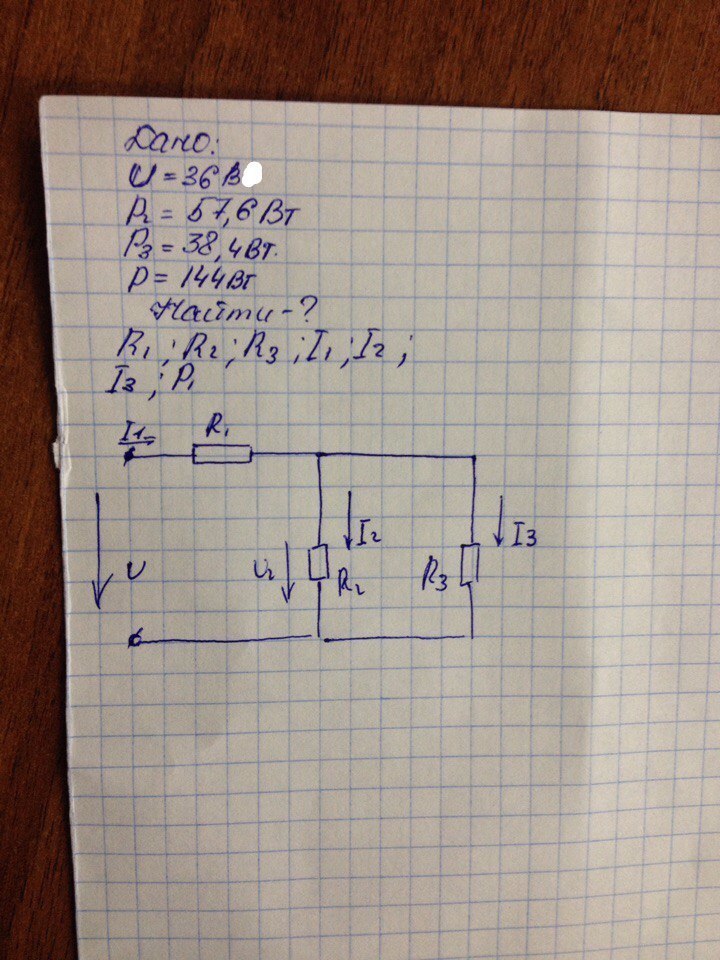 Дано:
U = 36 В
P₂ = 57,6 Вт
P₃ = 38,4 Вт.
P = 144 Вт
Найти - ?
R₁ ; R₂ ; R₃ ; I₁ ; I₂ ;
I₃ ; P₁
I₁ R₁
U U₂ I₂ R₂ R₃ I₃